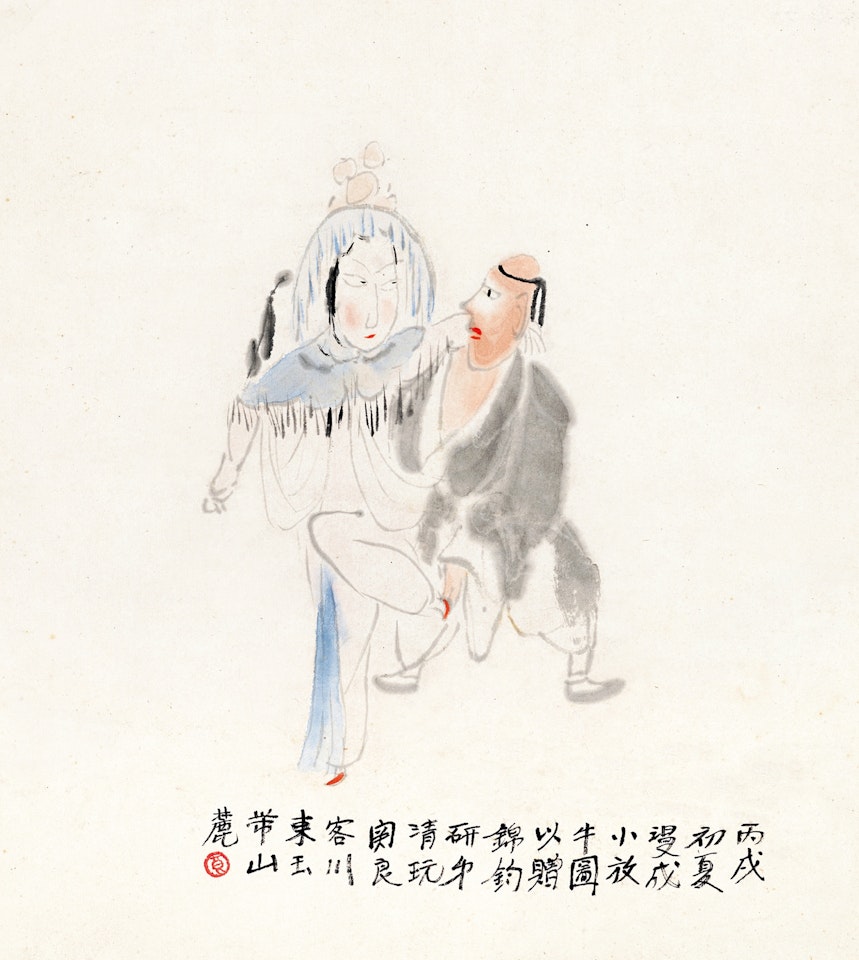 丙戌
初夏
漫成
小放
牛圖
以贈
錦鈞
研弟
清玩
関良
客川
東玉
带山
麓
良